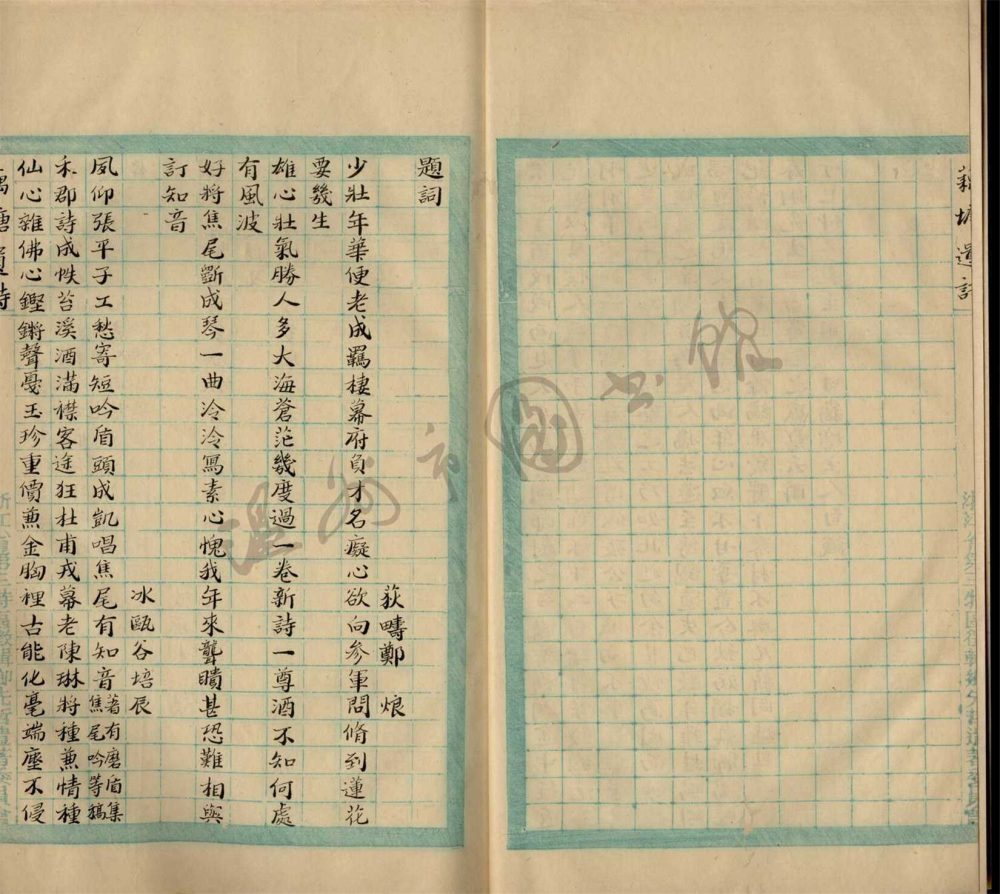 題詞
荻疇鄭烺
少壯年華便老成羈棲幕府負才名癡心欲向參軍問脩到蓮花
要幾生
雄心壯氣勝人多大海蒼茫幾度過一卷新詩一尊酒不知何處
有風波
好將焦尾斷成琴一曲泠泠寫素心愧我年來聾瞶甚恐難相與
訂知音
冰甌谷培辰
夙仰張平子工愁寄短吟盾頭成凱唱焦尾有知音著有磨盾集焦尾吟等稿
禾郡詩成帙苕溪酒滿襟客途狂杜甫戎幕老陳琳將種兼情種
仙心雜佛心鏗鏘聲戛玉珍重價兼金胸裡古能化毫端塵不侵
溫州市圖書館